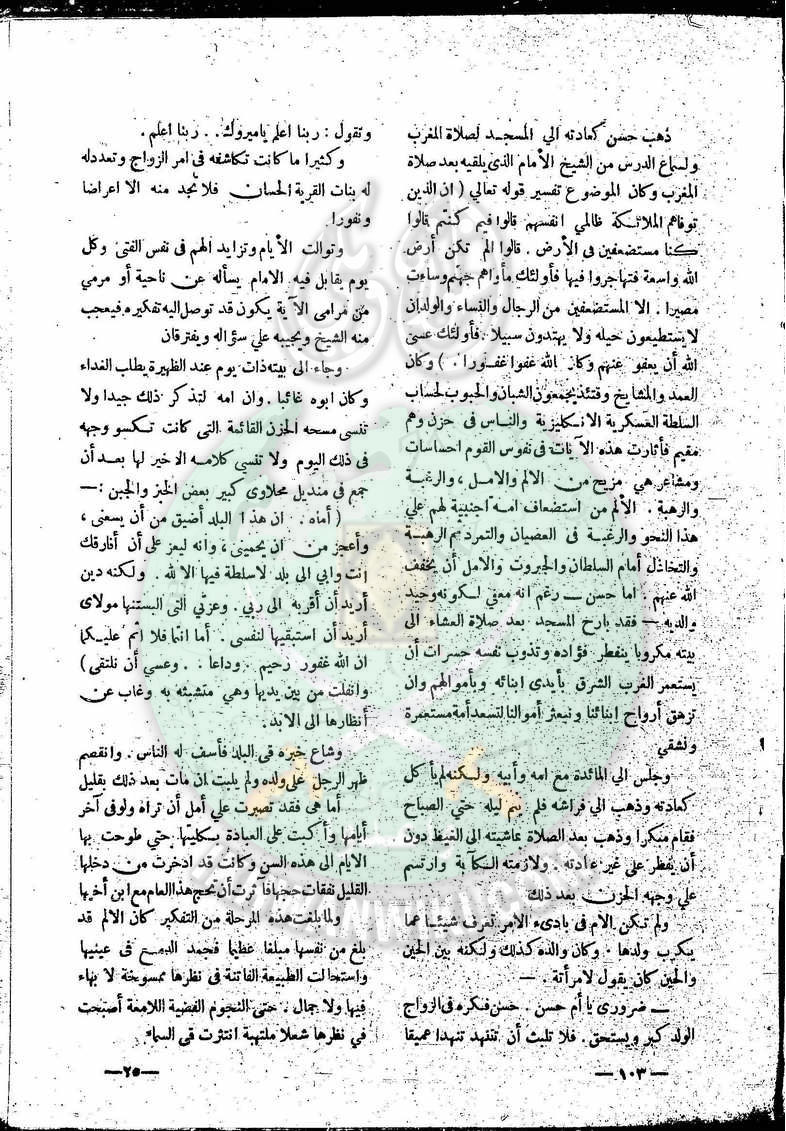 ذهب حسن كعادته الي المسجد لصلاة المغرب
ولسماع الدرس من الشيخ الأمام الذى يلقيه بعد صلاة
المغرب وكان الموضوع تفسير قوله تعالي ( ان الذين
توفاهم الملائكة ظالمي انفسهم قالوا فيم كنتم قالوا
كنا مستضعفين فى الأرض . قالوا الم تكن أرض
الله واسعة فتهاجروا فيها فأولئك مأواهم جهنم وساءت
مصيرا . الا المستضعفين من الرجال والنساء والولدان
لا يستطيعون حيله ولا يهتدون سبيلا . فأولئك عسى
الله أن يعفو عنهم وكان الله غفوا غفورا . ) وكان
العمد والمشايخ وقتئذ يجمعون الشبان والحبوب لحساب
السلطة العسكرية الانكليزية والناس فى حزن وهم
مقيم فأثارت هذه الآيات فى نفوس القوم احساسات
ومشاعر هي مزيج من الالم والامل ، والرغبة
والرهبة . الألم من استضعاف امه اجنبية لهم علي
هذا النحو والرغبة فى العصيان والتمرد ثم الرهبة
والتخاذل أمام السلطان والجبروت والامل أن يخفف
الله عنهم . اما حسن — رغم انه معفي لكونه وحيد
والديه — فقد بارح المسجد بعد صلاة العشاء الى
بيته مكروبا ينفطر فؤاده وتذوب نفسه حسرات أن
يستعمر الغرب الشرق بأيدى ابنائه وبأموالهم وان
تزهق أرواح ابنائنا وتبعثر أموالنا لتسعد أمة مستعمرة
ونشقي
وجلس الي المائدة مع امه وأبيه ولكنه لم يأكل
كعادته وذهب الي فراشه فلم ينم ليله حتي الصباح
فقام مبكرا وذهب بعد الصلاة بماشيته الى الغيط دون
أن يفطر علي غير عادته . ولازمته الكآبة وارتسم
علي وجهه الحزن بعد ذلك
ولم تكن الام فى بادىء الامر تعرف شيئا عما
يكرب ولدها . وكان والده كذلك ولكنه بين الحين
والحين كان يقول لامرأته . —
— ضرورى يا أم حسن . حسن فكره فى الزواج
الولد كبر ويستحق . فلا تلبث أن تتنهد تنهدا عميقا
— ١٠٣ —
وتقول : ربنا اعلم يامبروك . . ربنا اعلم .
وكثيرا ما كانت تكاشفه فى امر الزواج وتعدد له
له بنات القرية الحسان فلا تجد منه الا اعراضا
ونفورا
وتوالت الأيام وتزايد الهم فى نفس الفتى وكل
يوم يقابل فيه الامام يسأله عن ناحية أو مرمي
من مرامى الآية يكون قد توصل اليه تفكيره فيعجب
منه الشيخ ويجيبه علي سؤاله ويفترقان
وجاء الى بيته ذات يوم عند الظهيرة يطلب الغداء
وكان ابوه غائبا . وان امه لتذكر ذلك جيدا ولا
تنسى مسحه الحزن القائمة التى كانت تكسو وجهه
فى ذلك اليوم ولا تنسى كلامه الاخير لها بعد أن
جمع فى منديل محلاوى كبير بعض الخبز والجبن : —
( أماه . ان هذا البلد أضيق من أن يسعنى ،
وأعجز من ان يحميني ، وانه ليعز على أن أفارقك
انت وابي الى بلد لا سلطة فيها الا لله . ولكنه دين
أريد أن أقربه الى ربي . وعزتي التى البستنها مولاى
أريد أن استبقيها لنفسى . أما انتما فلا اثم عليكما
ان الله غفور رحيم . وداعا . . وعسي أن نلتقى )
وانفلت من بين يديها وهي متشبثه به وغاب عن
أنظارها الى الابد .
وشاع خبره فى البلد فأسف له الناس . وانقصم
ظهر الرجل على ولده ولم يلبث ان مات بعد ذلك بقليل
أما هى فقد تصبرت علي أمل أن تراه ولو فى آخر
أيامها وأكبت على العبادة بكليتها حتي طوحت بها
الايام الى هذه السن وكانت قد ادخرت من دخلها
القليل نفقات حجها فآثرت أن تحج هذا العام مع ابن أخيها
ولما بلغت هذه المرحلة من التفكير كان الالم قد
بلغ من نفسها مبلغا عظيما فجمد الدمع فى عينيها
واستحالت الطبيعة الفاتنة فى نظرها ممسوخة لا بهاء
فيها ولا جمال . حتى النجوم الفضية اللامعة أصبحت
في نظرها شعلا ملتهبة انتثرت فى السماء
— ٢٥ —